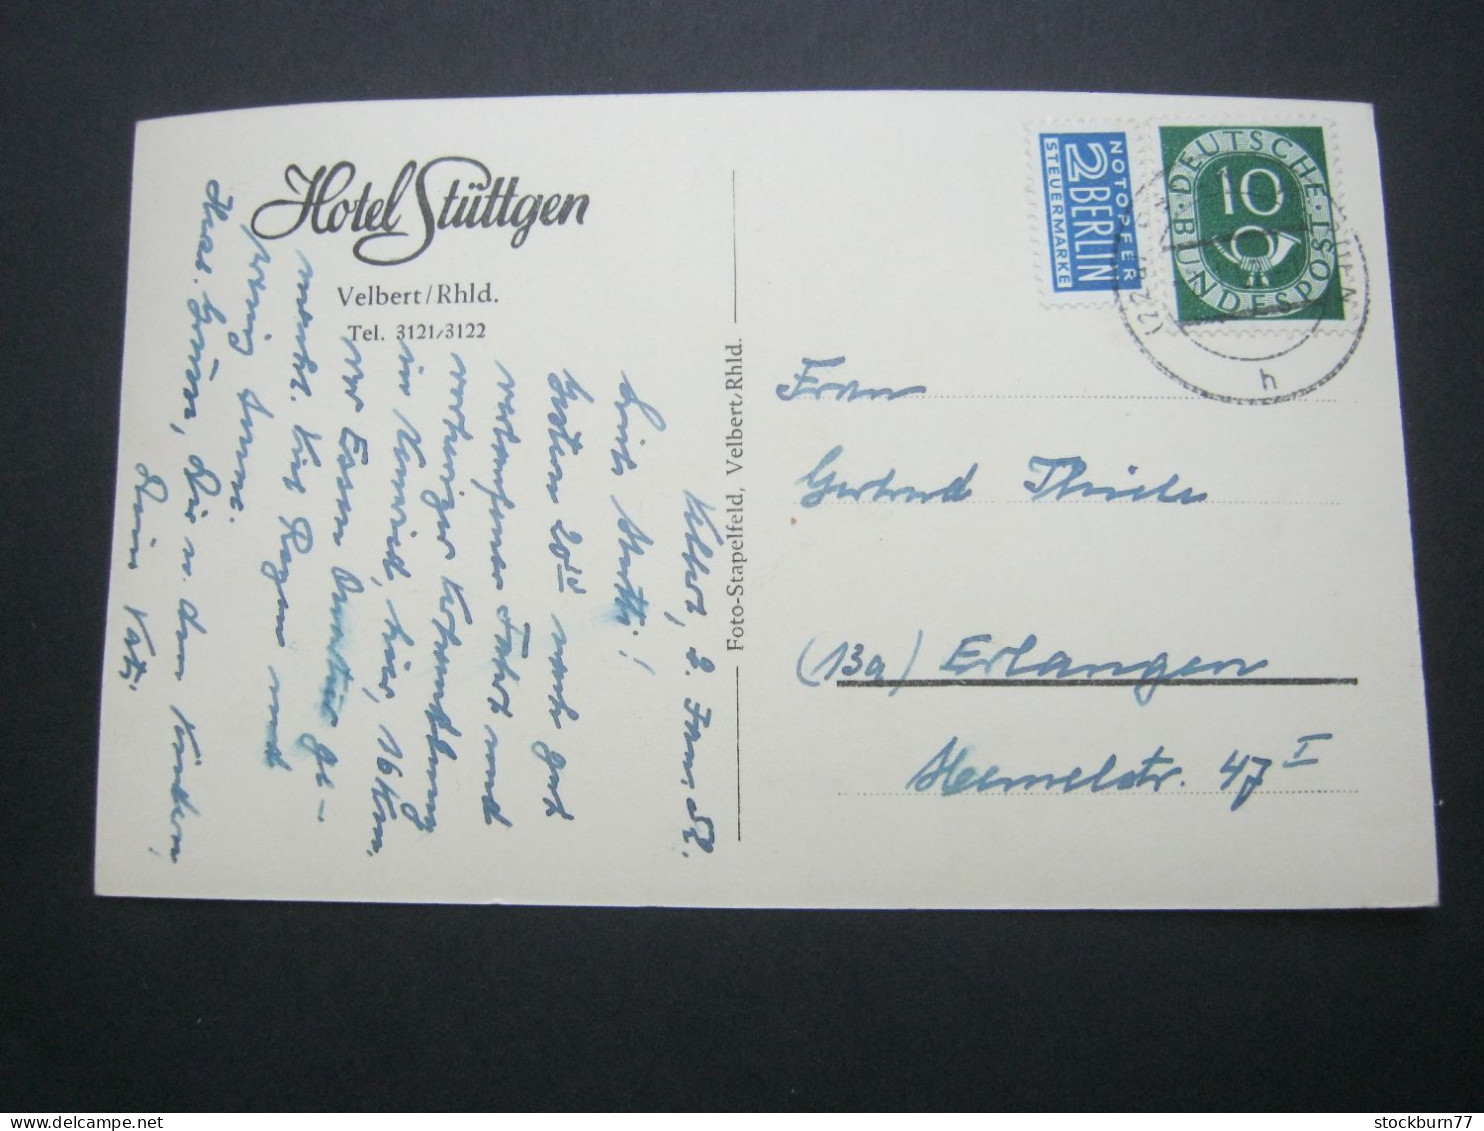 Hotel Stüttgen
Velbert/Rhld.
Tel. 3121/3122
Velbert, 2. Jan. 52.
Liebe Mutti!
Gestern 20 nach gut
verlaufener Fahrt und
in Neuwied, hier, 16 Km.
vor Essen Quartier ge-
macht. Kein Regen und
wenig Sonne.
Herzl. Grüsse, Dir u. den Kindern,
Dein Vati.
Foto-Stapelfeld, Velbert/Rhld.
NOTOPFER
2 BERLIN
STEUERMARKE
DEUTSCHE BUNDESPOST
10
(22
h
Frau
Gertrud Thiele
(13a) Erlangen
47 I
stockburn77